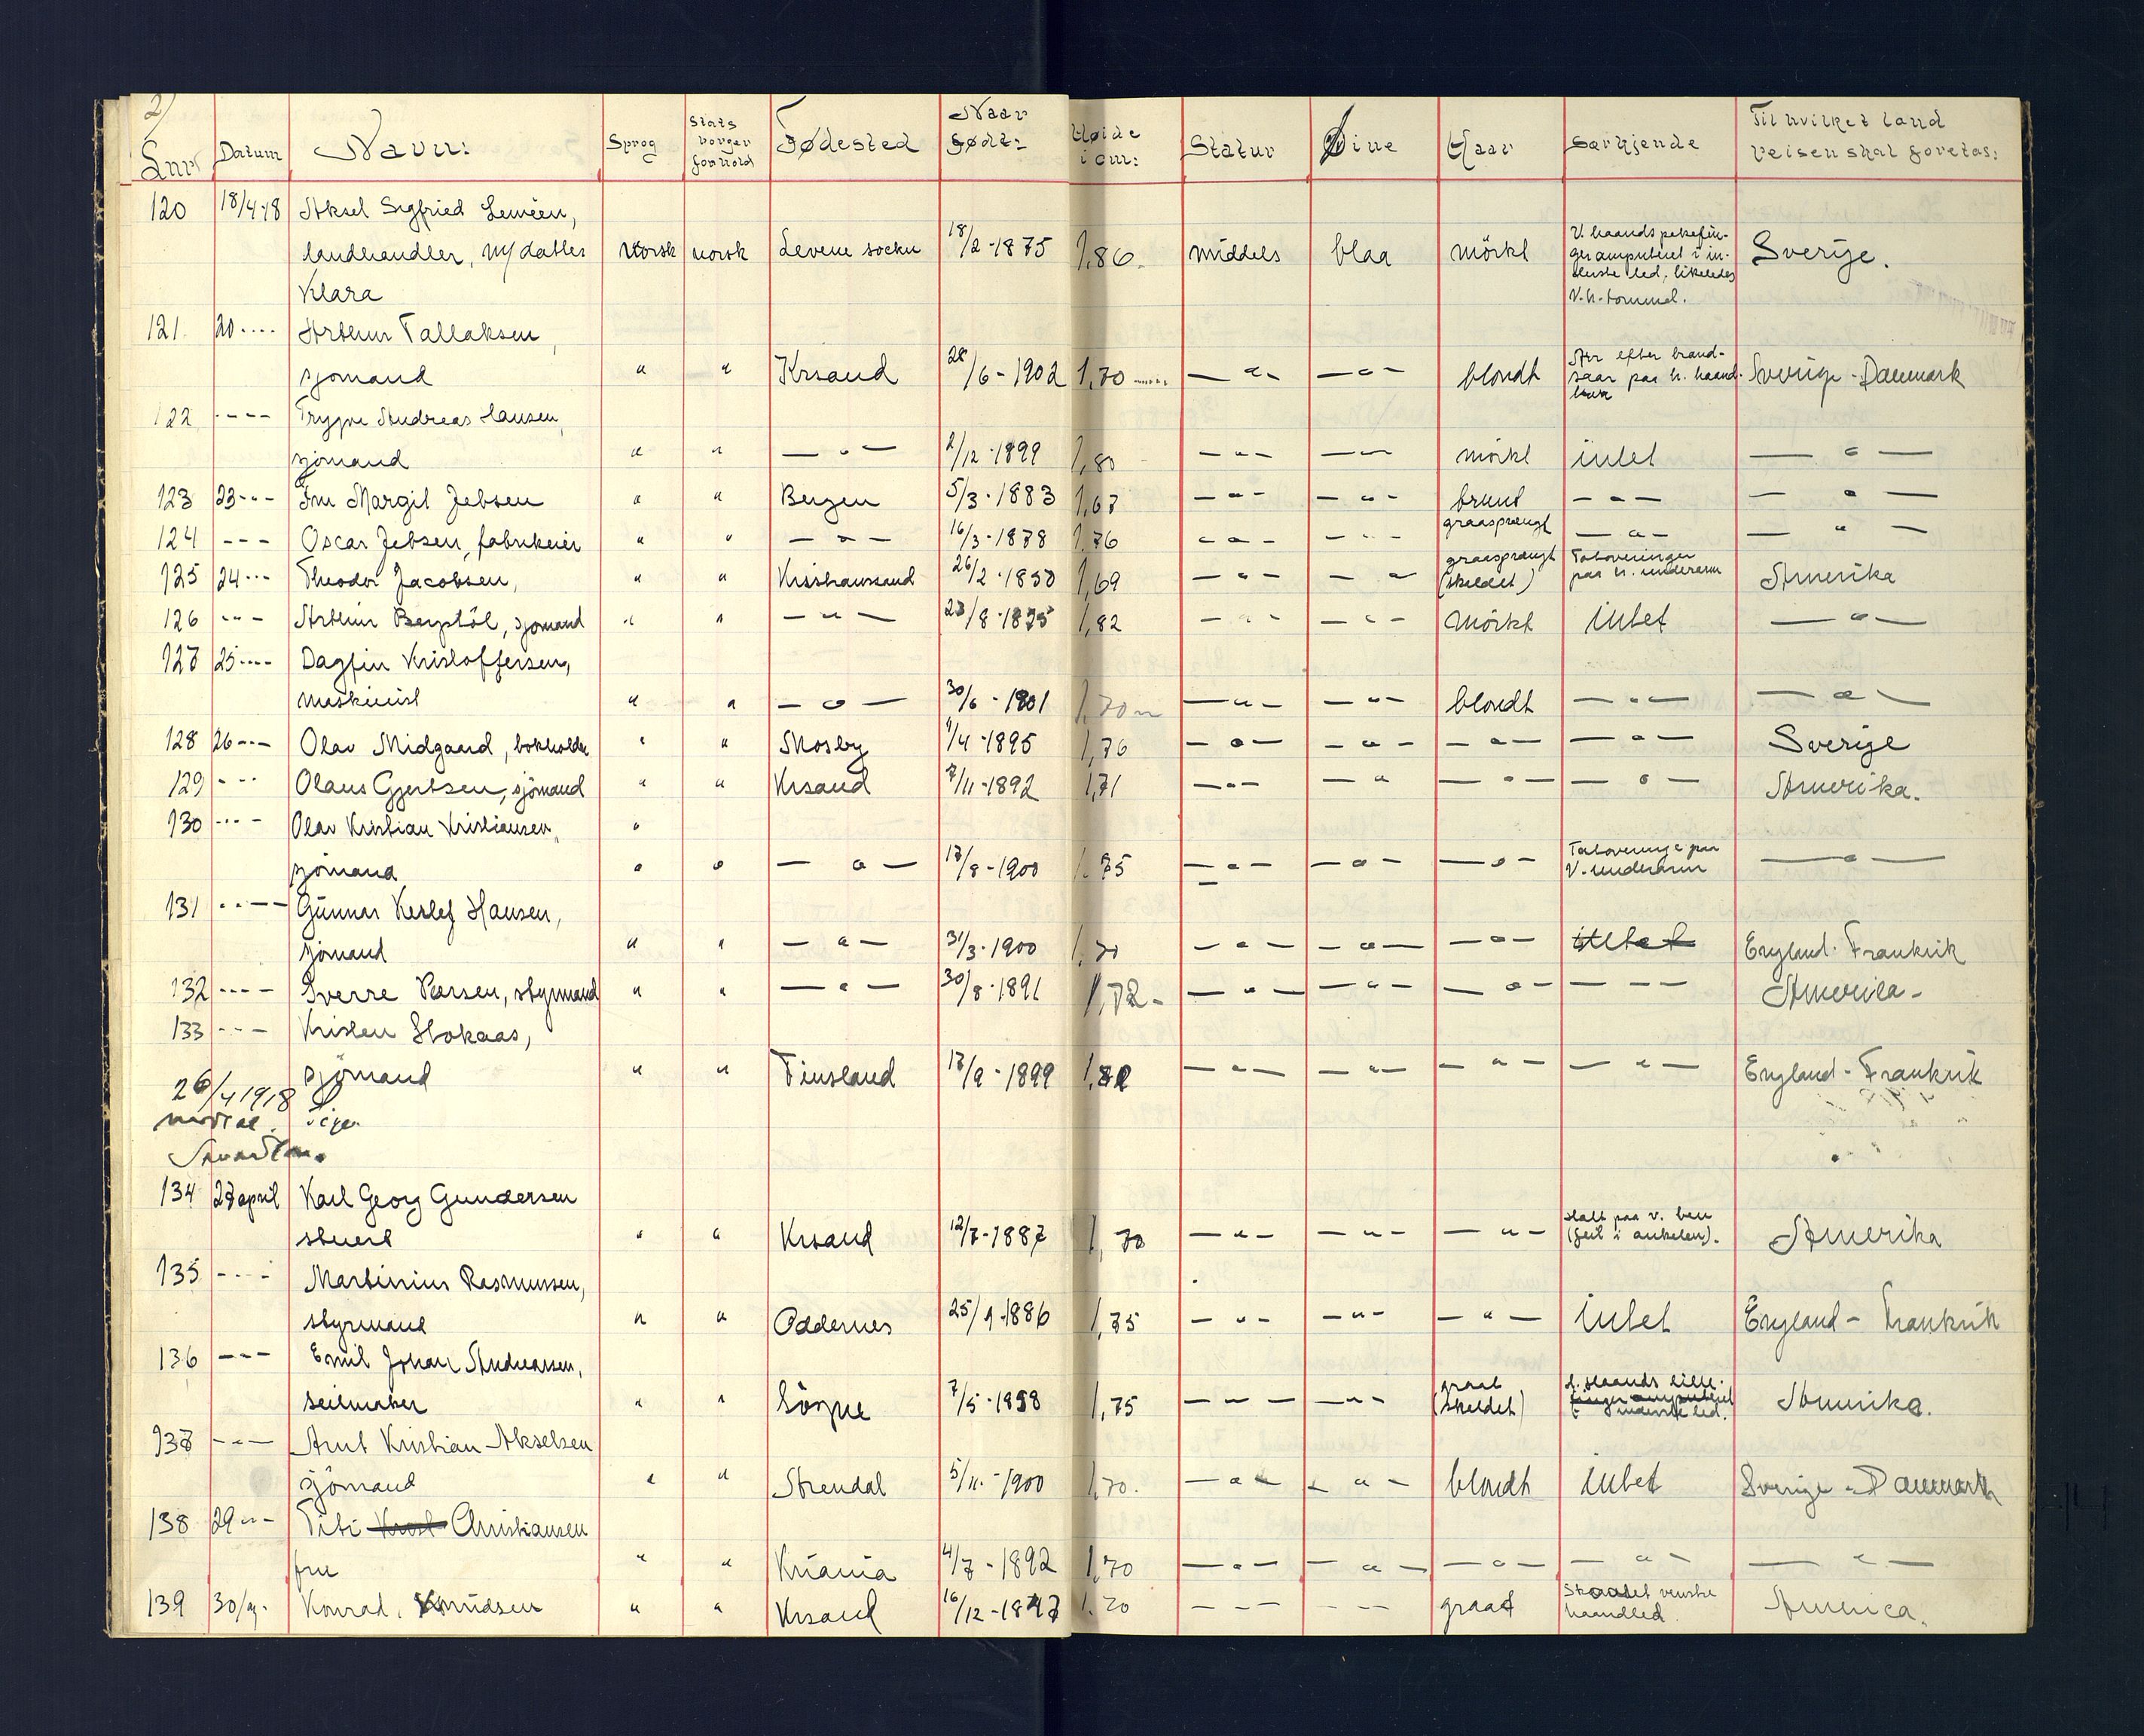 2/
Lnr Datum Navn: Sprog Stats borger forhold Fødested Naar født: Høide i cm: Statur Øine Haar Særkjende Til hvilket land reisen skal foretas:
120 18/4-18 Aksel Sigfried Leméen,
landhandler, m/datter norsk norsk Levene socku 18/2-1875 1,86. middels blaa mörkt V. haands pekefin- ger amputeret i in- derste led, likeledes V. h. tommel. Sverige.
Klara
121. 20.... Arthur Tallaksen,
sjömand " " Krsand 28/6-1902 1,70 — " — — " — blondt Arr efter brand- saar paa h. haand- Sverige - Danmark
122 ---- Trygve Andreas Hansen,
sjömand " " — " — 2/12-1899 1,80 — " — — " — mörkt intet — " —
123 23--- Fru Margit Jebsen " " Bergen 5/3-1883 1,67 — " — — " — brunt — " — — " —
124 --- Oscar Jebsen, fabrikeier " " — " — 16/3-1878 1,76 — " — — " — graasprængt — " — — " —
125 24--- Theodor Jacobsen, " " Kristianssand 26/2-1850 1,69 — " — — " — graasprængt (skaldet) Tatoveringer paa h. underarm Amerika
126 --- Arthur Bergstöl, sjömand " " — " — 23/8-1875 1,82 — " — — " — Mörkt intet — " —
127 25---- Dagfin Kristoffersen,
maskinist " " — " — 30/6-1801 1,70 — " — — " — blondt — " — — " —
128 26--- Olav Midgaard, bokholder " " Mosby 9/4-1895 1,76 — " — — " — — " — — " — Sverige
129 --- Olaus Gjertsen, sjömand " " Krsand 7/11-1892 1,71 — " — — " — " — — " — Amerika.
130 ---- Olav Kristian Kristiansen, "
sjömand " " — " — 17/8-1900 1.75 — " — — " — — " — Tatovering paa V. underarm — " —
131 ---- Gunnar Kerlef Hansen,
sjömand " " — " — 31/3-1900 1.70 — " — — " — — " — intet England - Frankrik
132 ---- Sverre Larsen, styrmand " " — " — 30/8-1891 1,72- — " — — " — — " — — — — Amerika-
133 ---- Kristen Stokaas,
sjömand " " Finsland 17/9-1899 1,82 — " — — " — — " — — " — England - Frankrik
26/4 1918
134 27 april Karl Georg Gundersen
stuert " " Krsand 12/7-1887 1,70 — " — — " — — " — Halt paa v. ben (feil i ankelen). Amerika
135 ---- Martinius Rasmussen,
styrmand " " Oddernes 25/9-1886 1,75 — " — — " — — " — intet England - Frankrik
136 --- Emil Johan Andreassen,
seilmaker " " Sögne 7/5-1858 1,75 — — — — " — graat (skaldet) haands lille- finger amputeret inderste led. Amerika.
137 --- Arnt Kristian Akselsen
sjömand " " Arendal 5/11-1900 1,70. — " — — " — blondt intet Sverige - Danmark
138 29 " - Titi Christiansen
fru " " Kriania 4/7-1892 1,70 — " — — " — — " — — " — — " —
139 30/4- Konrad. Knudsen " " Krsand 16/12-1847 1.70 — — — — — graat Skadet venstre haandled. America.